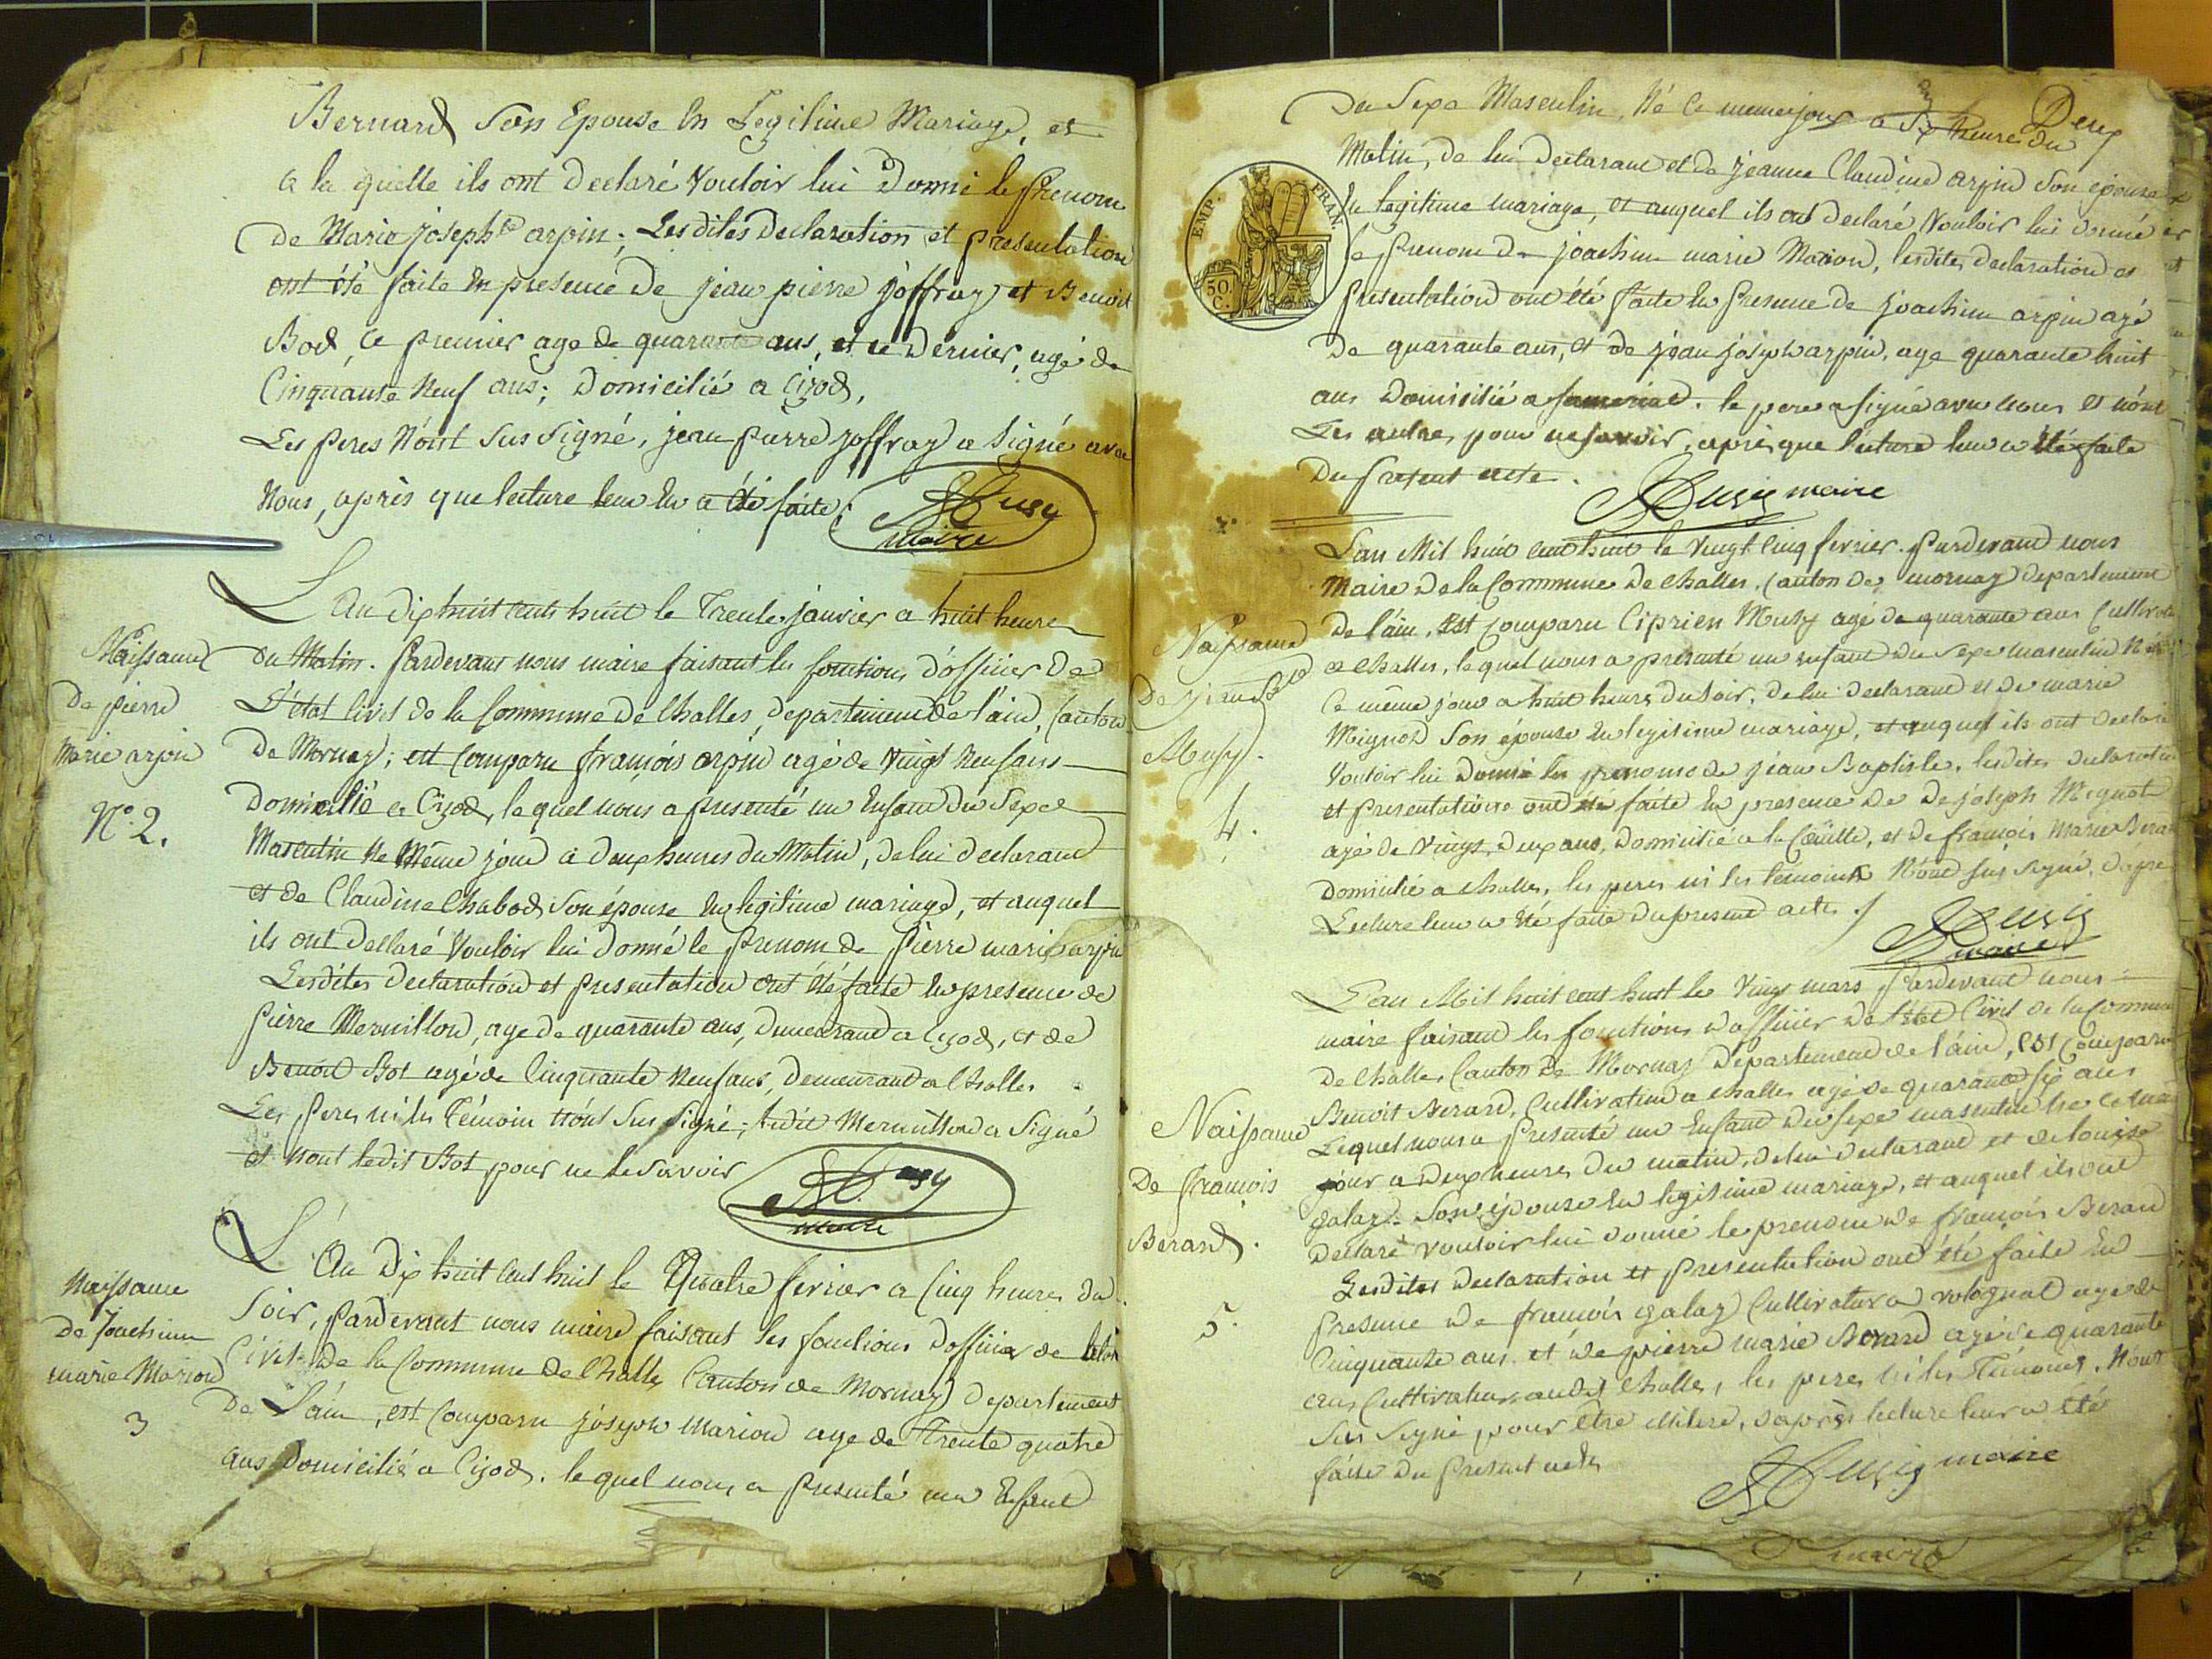 Bernard Son Epouse En Legitime Mariage, et
a la quelle ils ont declaré Vouloir lui Donné le Prenom
De Marie josephte arpin; Les dites Declaration et presentation
ont été faite En presence De jean pierre joffray et Benoit
Bod, Ce premier age de quarante ans, et ce Dernier, agé de
Cinquante Neuf ans; Domicilié a Cizod,
Les Peres N'ont Sus Signé, jean pierre joffray a Signé avec
Nous, après que lecture leur En a été faite.
maire
L'An dix huit Cents huit le Trente janvier a huit heures
du Matin. Pardevant nous maire faisant les fonctions d'officier De
L'état Civil de la Commune De Challes, departement De l'ain, Canton
De Mornay; est Comparu françois arpin agé de Vingt Neuf ans
Domicilié a Cizod, le quel nous a presenté un Enfant Du Sexe
Masculin Né Même jour a deux heures du Matin, de lui declarant
et de Claudine Chabod Son épouse En legitime mariage, et auquel
ils ont declaré Vouloir lui Donné le Prenom de Pierre marie arpin
Lesdites declaration et presentation ont été faite En presence de
Pierre Mermillon, age de quarante ans, Demeurant a Cizod, et de
Benoit Bot agé de Cinquante Neuf ans, Demeurant a Challes
Les peres ni les Témoin n'ont Sus Signé; ledit Mermillon a Signé
et nont ledit Bot pour ne le Savoir
maire
Naissance
De pierre
Marie arpin
N° 2.
L'An Dix huit Cent huit le Quatre fevrier a Cinq heures Du
Soir, Pardevant nous maire faisant les fonctions d'officier de letat
Civil De la Commune de Challes Canton de Mornay Departement
De L'ain, est Comparu joseph Marion age de Trente quatre
ans Domicilié a Cizod. le quel nous a Presenté un Enfant
Naissance
De Joachim
marie Marion
3
Deux
Du Sexe Masculin, Né le meme jour a Six heure du
Matin, de lui Declarant et de jeanne Claudine arpin Son épouse
En legitime mariage, et auquel ils ont declaré Vouloir lui donné
le Prenom De joachim marie Marion, lesdites declaration et
Presentation ont été faite En Presence de joachim arpin agé
De quarante ans, et de jean joseph arpin, age quarante huit
ans Domicilié a . le pere a Signé avec nous et n'ont
Les autres pour ne Savoir, après que lecture leur a été faite
Du Present acte.
maire
EMP. FRAN.
50 C.
L'an Mil huit Cent huit le Vingt Cinq fevrier. Pardevant nous
Maire De la Commune De Challes. Canton De mornay departement
De l'ain, Est Comparu Ciprien Musy agé de quarante ans Cultivateur
a Challes, le quel nous a presenté un enfant du Sexe masculin Né
Ce même jour a huit heures Du Soir, De lui declarant et De marie
Mignot Son épouse En legitime mariage, et auquel ils ont declaré
Vouloir lui Donné les prenoms de jean Baptiste. lesdites declaration
et presentations ont été faite En presence De De joseph Mignot
agé de Vingt, deux ans, domicilié a la , et de françois Marie
Domicilié a Challes, les peres ni les temoins N'ont Sus Signé,
Lecture leur a été faite du present acte.
maire
Naissance
De jean Bte
Musy.
4.
L'an Mil huit cent huit le Vingt mars Pardevant nous
maire faisant les fonctions d'officier de l'état Civil de la Commune
De Challes Canton De Mornay Département de l'ain, Est Comparu
Benoit Berard, Cultivateur a Challes agé de quarante Six ans
Lequel nous a Presenté un Enfant du Sexe masculin né le meme
jour a Deux heures Du matin, de lui declarant et de louise
galay Son épouse En legitime mariage, et auquel ils ont
Declaré vouloir lui donné le prenom de françois Berard
Lesdites declaration et presentation ont été faite En
Presence De françois galay Cultivateur a volognat agé de
Cinquante ans. et de pierre marie Berard agé de quarante
ans Cultivateur audit Challes, les peres ni les Témoins. N'ont
Sus Signé pour être , d'après lecture leur a été
faite Du Present acte
maire
Naissance
De françois
Berard.
5.
maire